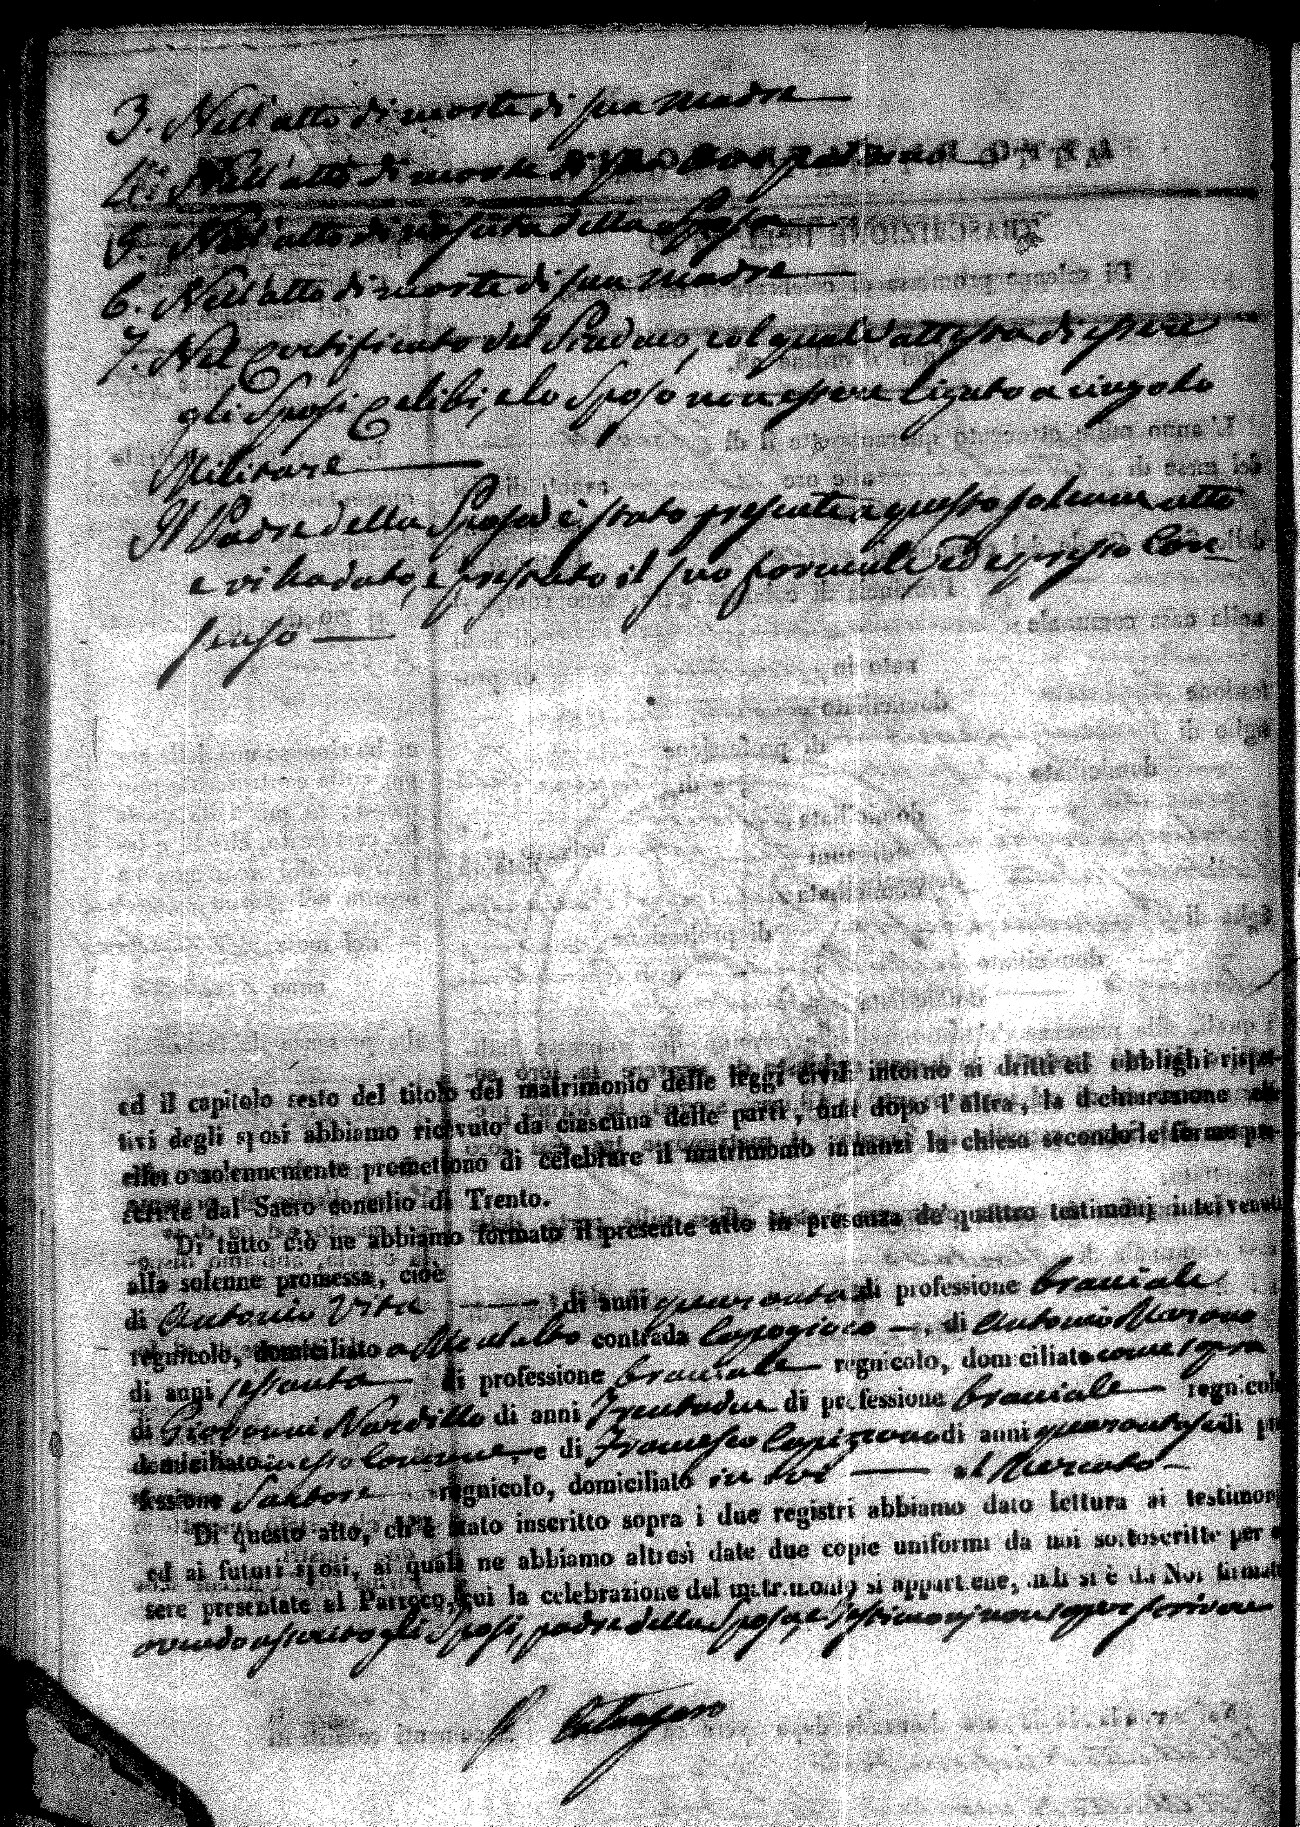 3. Nell'atto di morte di sua madre
4. Nell'atto di morte di suo avo paterno
5. Nell'atto di nascita della Sposa
6. Nell'atto di morte di sua madre
7. Nel Certificato del Sindaco, col quale attesta di essere
gli Sposi Celibi, e lo Sposo non essere ligato a cingolo
Militare
Il Padre della Sposa è stato presente a questo solenne atto
e vi ha dato, e prestato il suo formale, ed espresso Con
senso
ed il capitolo sesto del titolo del matrimonio delle leggi civili intorno ai dritti ed obblighi rispet-
tivi degli sposi abbiamo ricevuto da ciascuna delle parti, una dopo l'altra, la dichiarazione che
elleno solennemente promettono di celebrare il matrimonio innanzi la chiesa secondo le forme pre-
scritte dal Sacro concilio di Trento.
Di tutto ciò ne abbiamo formato il presente atto in presenza de' quattro testimonj intervenuti
alla solenne promessa, cioè
di Antonio Vita di anni quaranta di professione braciale
regnicolo, domiciliato a Montalto contrada Capogioco, di Antonio Marono
di anni sessanta di professione braciale regnicolo, domiciliato come sopra
di Giovanni Nardillo di anni Trentadue di professione braciale regnicolo
domiciliato in esso Comune e di Francesco di anni quarantasei di pro
fessione Sartore regnicolo, domiciliato in ivi al Mercato
Di questo atto, ch'è stato inscritto sopra i due registri abbiamo dato lettura ai testimonj
ed ai futuri sposi, ai quali ne abbiamo altresì date due copie uniformi da noi sottoscritte per es
sere presentate al Parroco, cui la celebrazione del matrimonio si appartiene, indi si è da Noi firmato
avendo asserito gli Sposi, padre della Sposa, e Testimonj non sapere scrivere